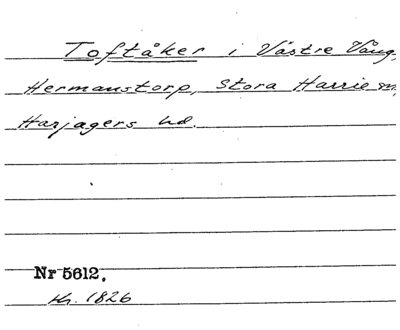 Toftåker i Västre Vång,
Hermanstorp, Stora Harrie sn,
Harjagers hd.
Nr 5612.
Kr. 1826